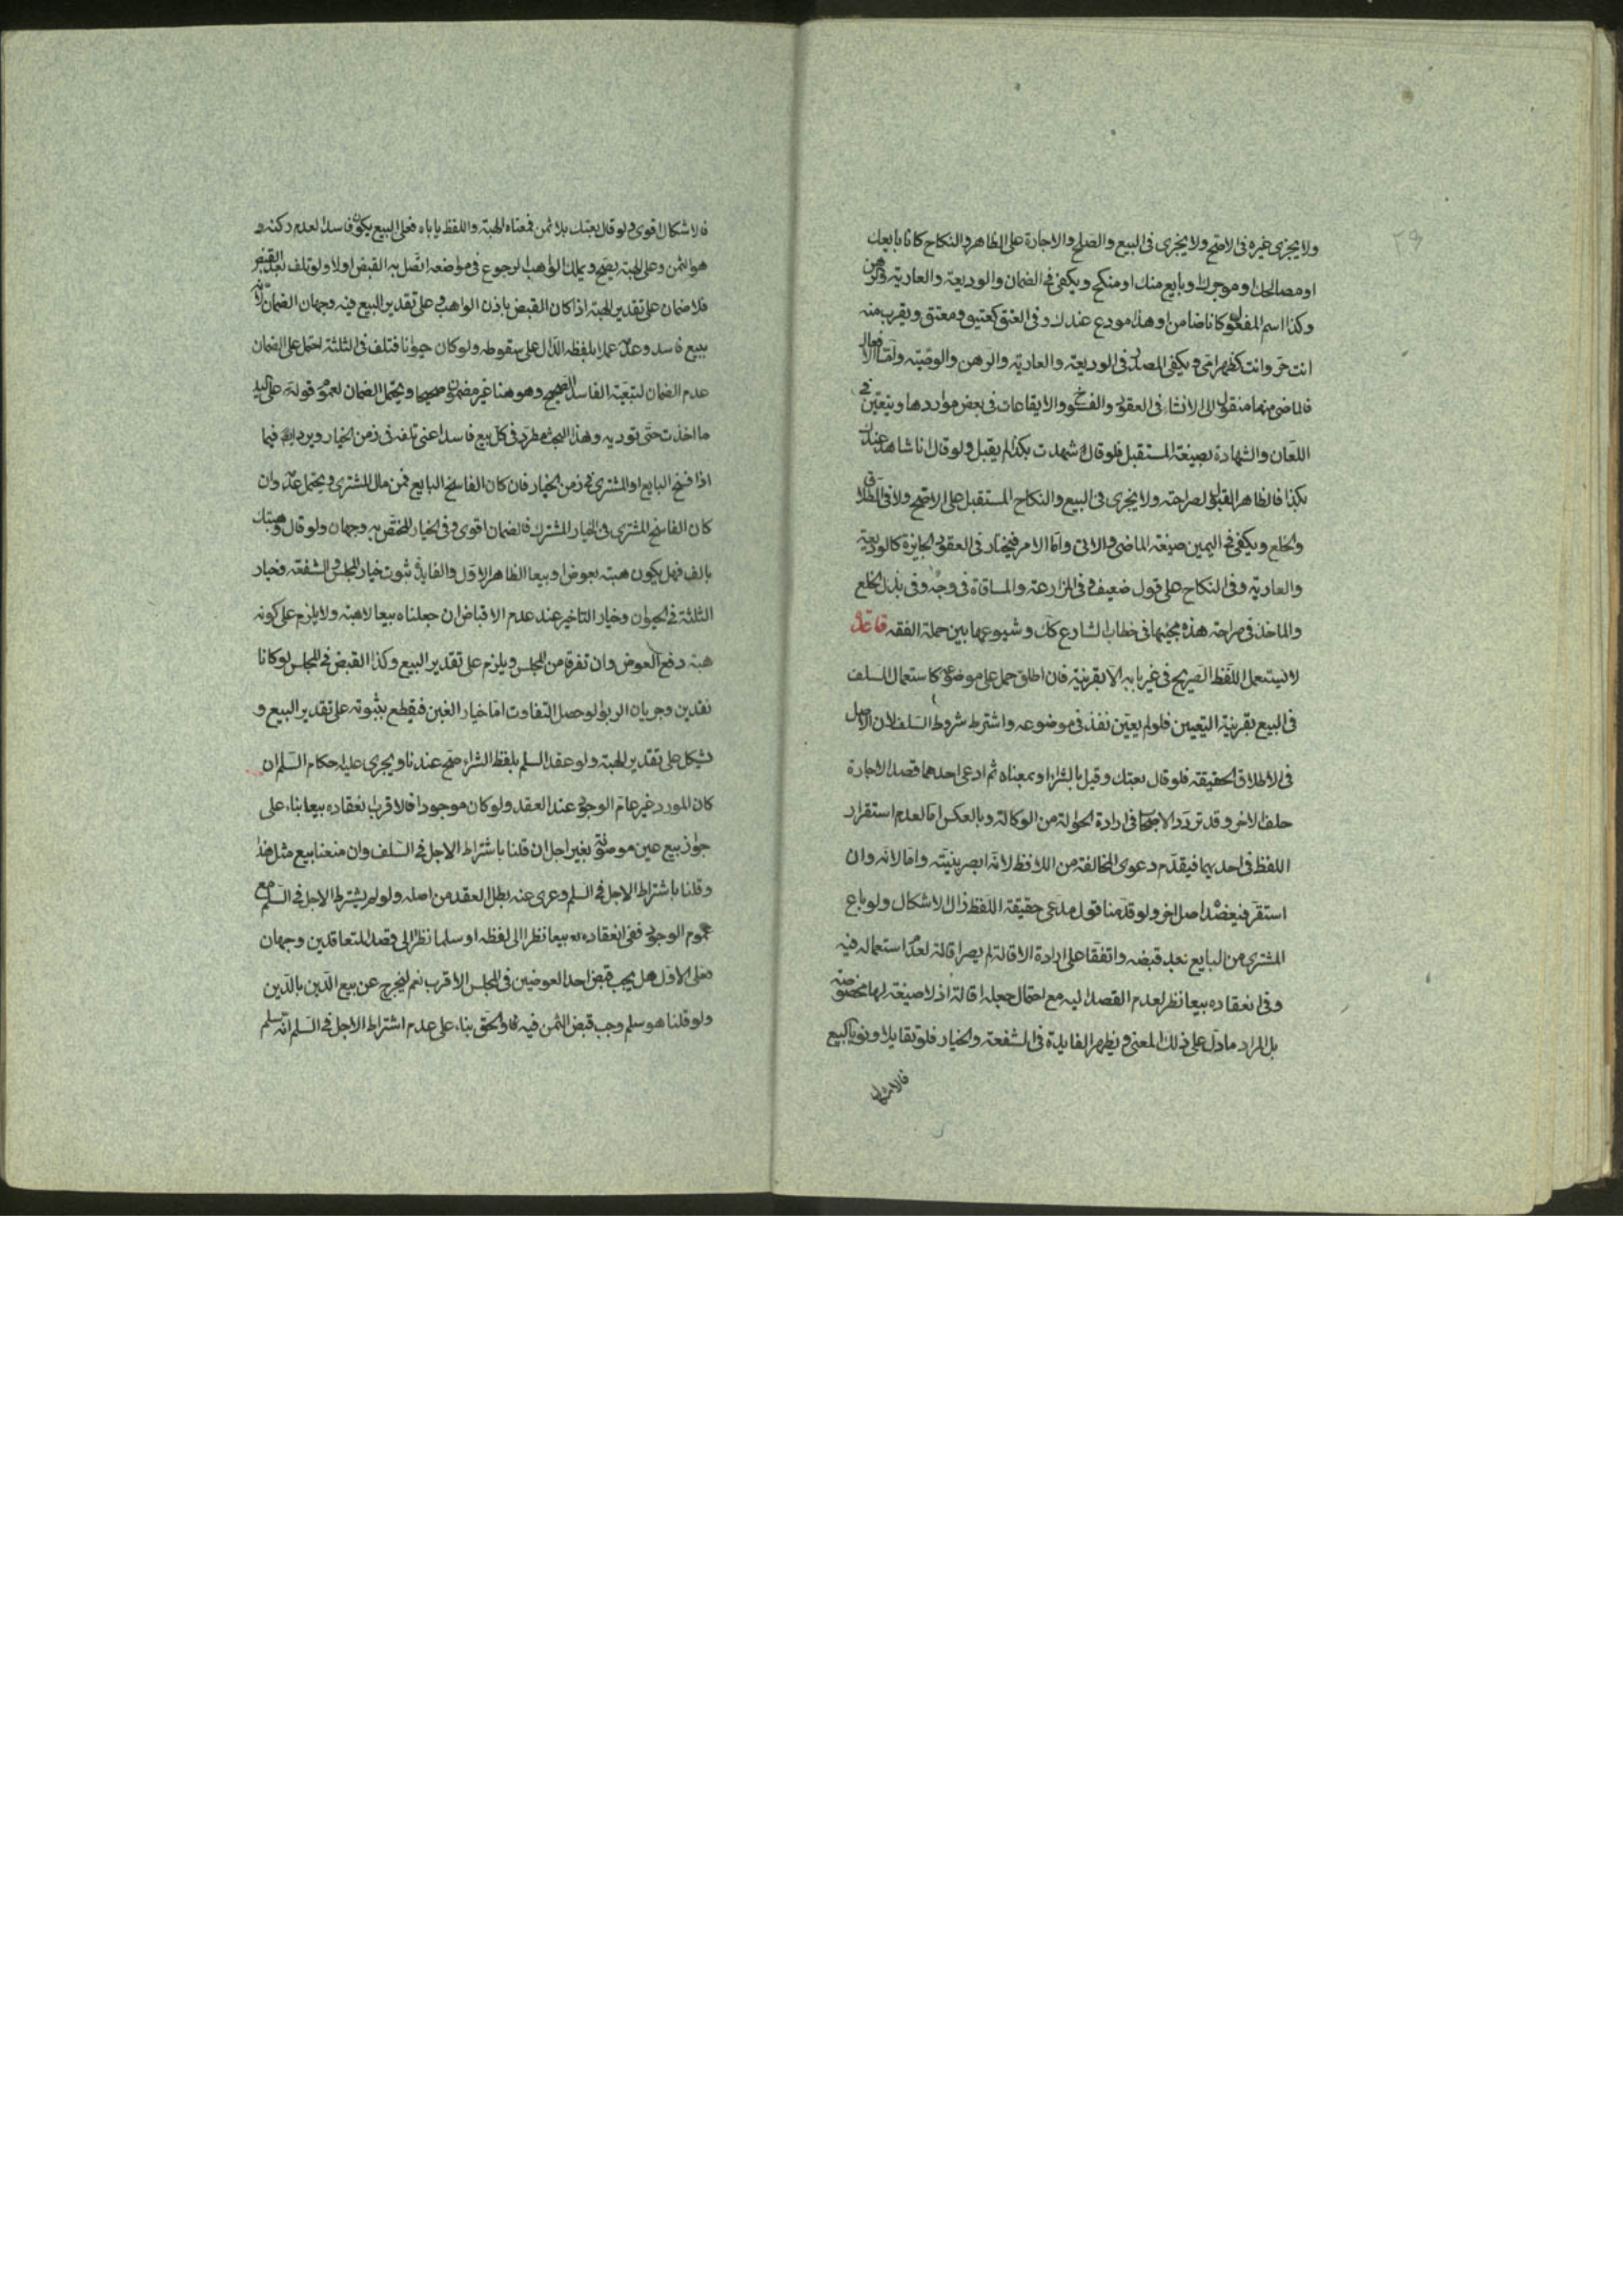 ٢٩
ولا يجزى غيره فى الاصح ولا يجزى فى البيع والصلح والاجارة على الظاهر والنكاح كانا بايعك
او مصالحك او موجرك او بايع منك او منكح ويكفى فى الضمان والوديعة والعارية والرهن
وكذا اسم المفعول كانا ضامن او هذا مودع عندك وفى العتق كعتيق ومعتق ويقرب منه
انت حر وانت كظهر امى ويكفى المصدر فى الوديعة والعارية والرهن والوصية واما الافعال
فالماضى منها منقول الى الانشاء فى العقود والفسوخ والايقاعات فى بعض مواردها ويتعين فى
اللعان والشهادة بصيغة المستقبل فلو قال شهدت بكذا لم يقبل ولو قال انا شاهد عندك
بكذا فالظاهر القبول لصراحته ولا يجزى فى البيع والنكاح المستقبل على الاصح ولا فى الطلاق
والخلع ويكفى فى اليمين صيغة الماضى والاتى واما الامر فيختار فى العقود الجايزة كالوديعة
والعارية وفى النكاح على قول ضعيف وفى المزارعة والمساقاة فى وجه وفى بذل الخلع
والماخذ فى صراحة هذه مجيئها فى خطاب الشارع كك وشيوعها بين حملة الفقه قاعدة
لا يستعمل اللفظ الصريح فى غير بابه الا بقرينة فان اطلق حمل على موضوعه كاستعمال السلف
فى البيع بقرينة التعيين فلو لم يعين نفذ فى موضوعه واشترط شروط السلف لان الاصل
فى الاطلاق الحقيقة فلو قال بعتك وقيل بالشراء او بمعناه ثم ادعى احدهما قصد الاجارة
حلف الاخر وقد تردد الاصحاب فى ارادة الحوالة من الوكالة وبالعكس اما لعدم استقرار
اللفظ فى احديهما فيقدم دعوى المخالفة من اللافظ لانه ابصر بنيته واما لانه وان
استقر فيعضده اصل اخر ولو قدمنا قول مدعى حقيقة اللفظ زال الاشكال ولو باع
المشترى من البايع بعد قبضه واتفقا على ارادة الاقالة لم يصر اقالة لعدم استعماله فيه
وفى انعقاده بيعا نظر لعدم القصد اليه مع احتمال جعله اقالة اذ لا صيغة لها مخصوصة
بل المراد ما دل على ذلك المعنى ويظهر الفايدة فى الشفعة والخيار فلو تقايلا ونويا البيع
فالاشكال
فالاشكال اقوى ولو قال بعتك بلا ثمن فمعناه الهبة واللفظ ياباه فعلى البيع يكون فاسدا لعدم ركنه و
هو الثمن وعلى الهبة يصح ويملك الواهب الرجوع فى مواضعه اتصل به القبض اولا ولو تلف بعد القبض
فلا ضمان على تقدير الهبة اذا كان القبض باذن الواهب وعلى تقدير البيع فيه وجهان الضمان لانه
بيع فاسد وعدمه عملا بلفظه الدال على سقوطه ولو كان حيوانا فتلف فى الثلثة احتمل على الضمان
عدم الضمان لتبعية الفاسد الصحيح وهو هنا غير مضمون صحيحا ويحتمل الضمان لعموم قوله على اليد
ما اخذت حتى توديه وهذا البحث مطرد فى كل بيع فاسد اعنى تلفه فى زمن الخيار ويرد ايضا فيما
اذا فسخ البايع او المشترى فى زمن الخيار فان كان الفاسخ البايع فمن مال المشترى ويحتمل عدمه وان
كان الفاسخ المشترى فى الخيار المشترك فالضمان اقوى وفى الخيار المختص به وجهان ولو قال وهبتك
بالف فهل يكون هبة بعوض او بيعا الظاهر الاول والفايدة ثبوت خيار المجلس والشفعة وخيار
الثلثة فى الحيوان وخيار التاخير عند عدم الاقباض ان جعلناه بيعا لا هبة ولا يلزم على كونه
هبة دفع العوض وان تفرقا من المجلس ويلزم على تقدير البيع وكذا القبض فى المجلس لو كانا
نقدين وجريان الربوا لو حصل التفاوت اما خيار الغبن فيقطع بثبوته على تقدير البيع و
يشكل على تقدير الهبة ولو عقد السلم بلفظ الشراء صح عندنا ويجرى عليه احكام السلم ان
كان المورد غير عام الوجود عند العقد ولو كان موجودا فالاقرب انعقاده بيعا بناء على
جواز بيع عين موصوفة بغير اجل ان قلنا باشتراط الاجل فى السلف وان منعنا بيع مثل هذا
وقلنا باشتراط الاجل فى السلم وعرى عنه بطل العقد من اصله ولو لم يشترط الاجل فى السلم مع
عموم الوجود ففى انعقاده بيعا نظرا الى لفظه او سلما نظرا الى قصد المتعاقدين وجهان
فعلى الاول هل يجب قبض احد العوضين فى المجلس الاقرب نعم ليخرج عن بيع الدين بالدين
ولو قلنا هو سلم وجب قبض الثمن فيه والحق بناء على عدم اشتراط الاجل فى السلم انه سلم